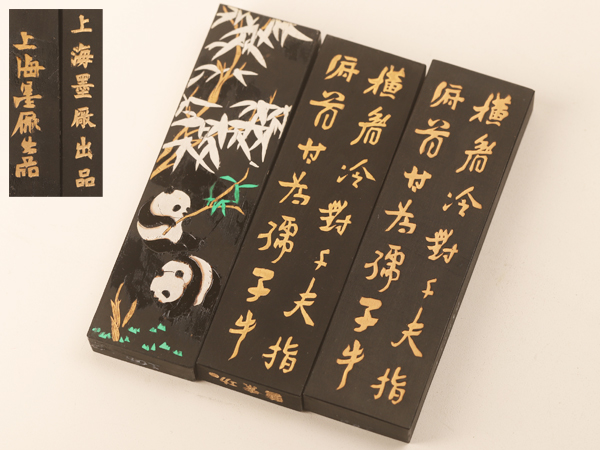 上海墨厰出品
上海墨厰出品
橫眉冷對千夫指
俯首甘為孺子牛
橫眉冷對千夫指
俯首甘為孺子牛